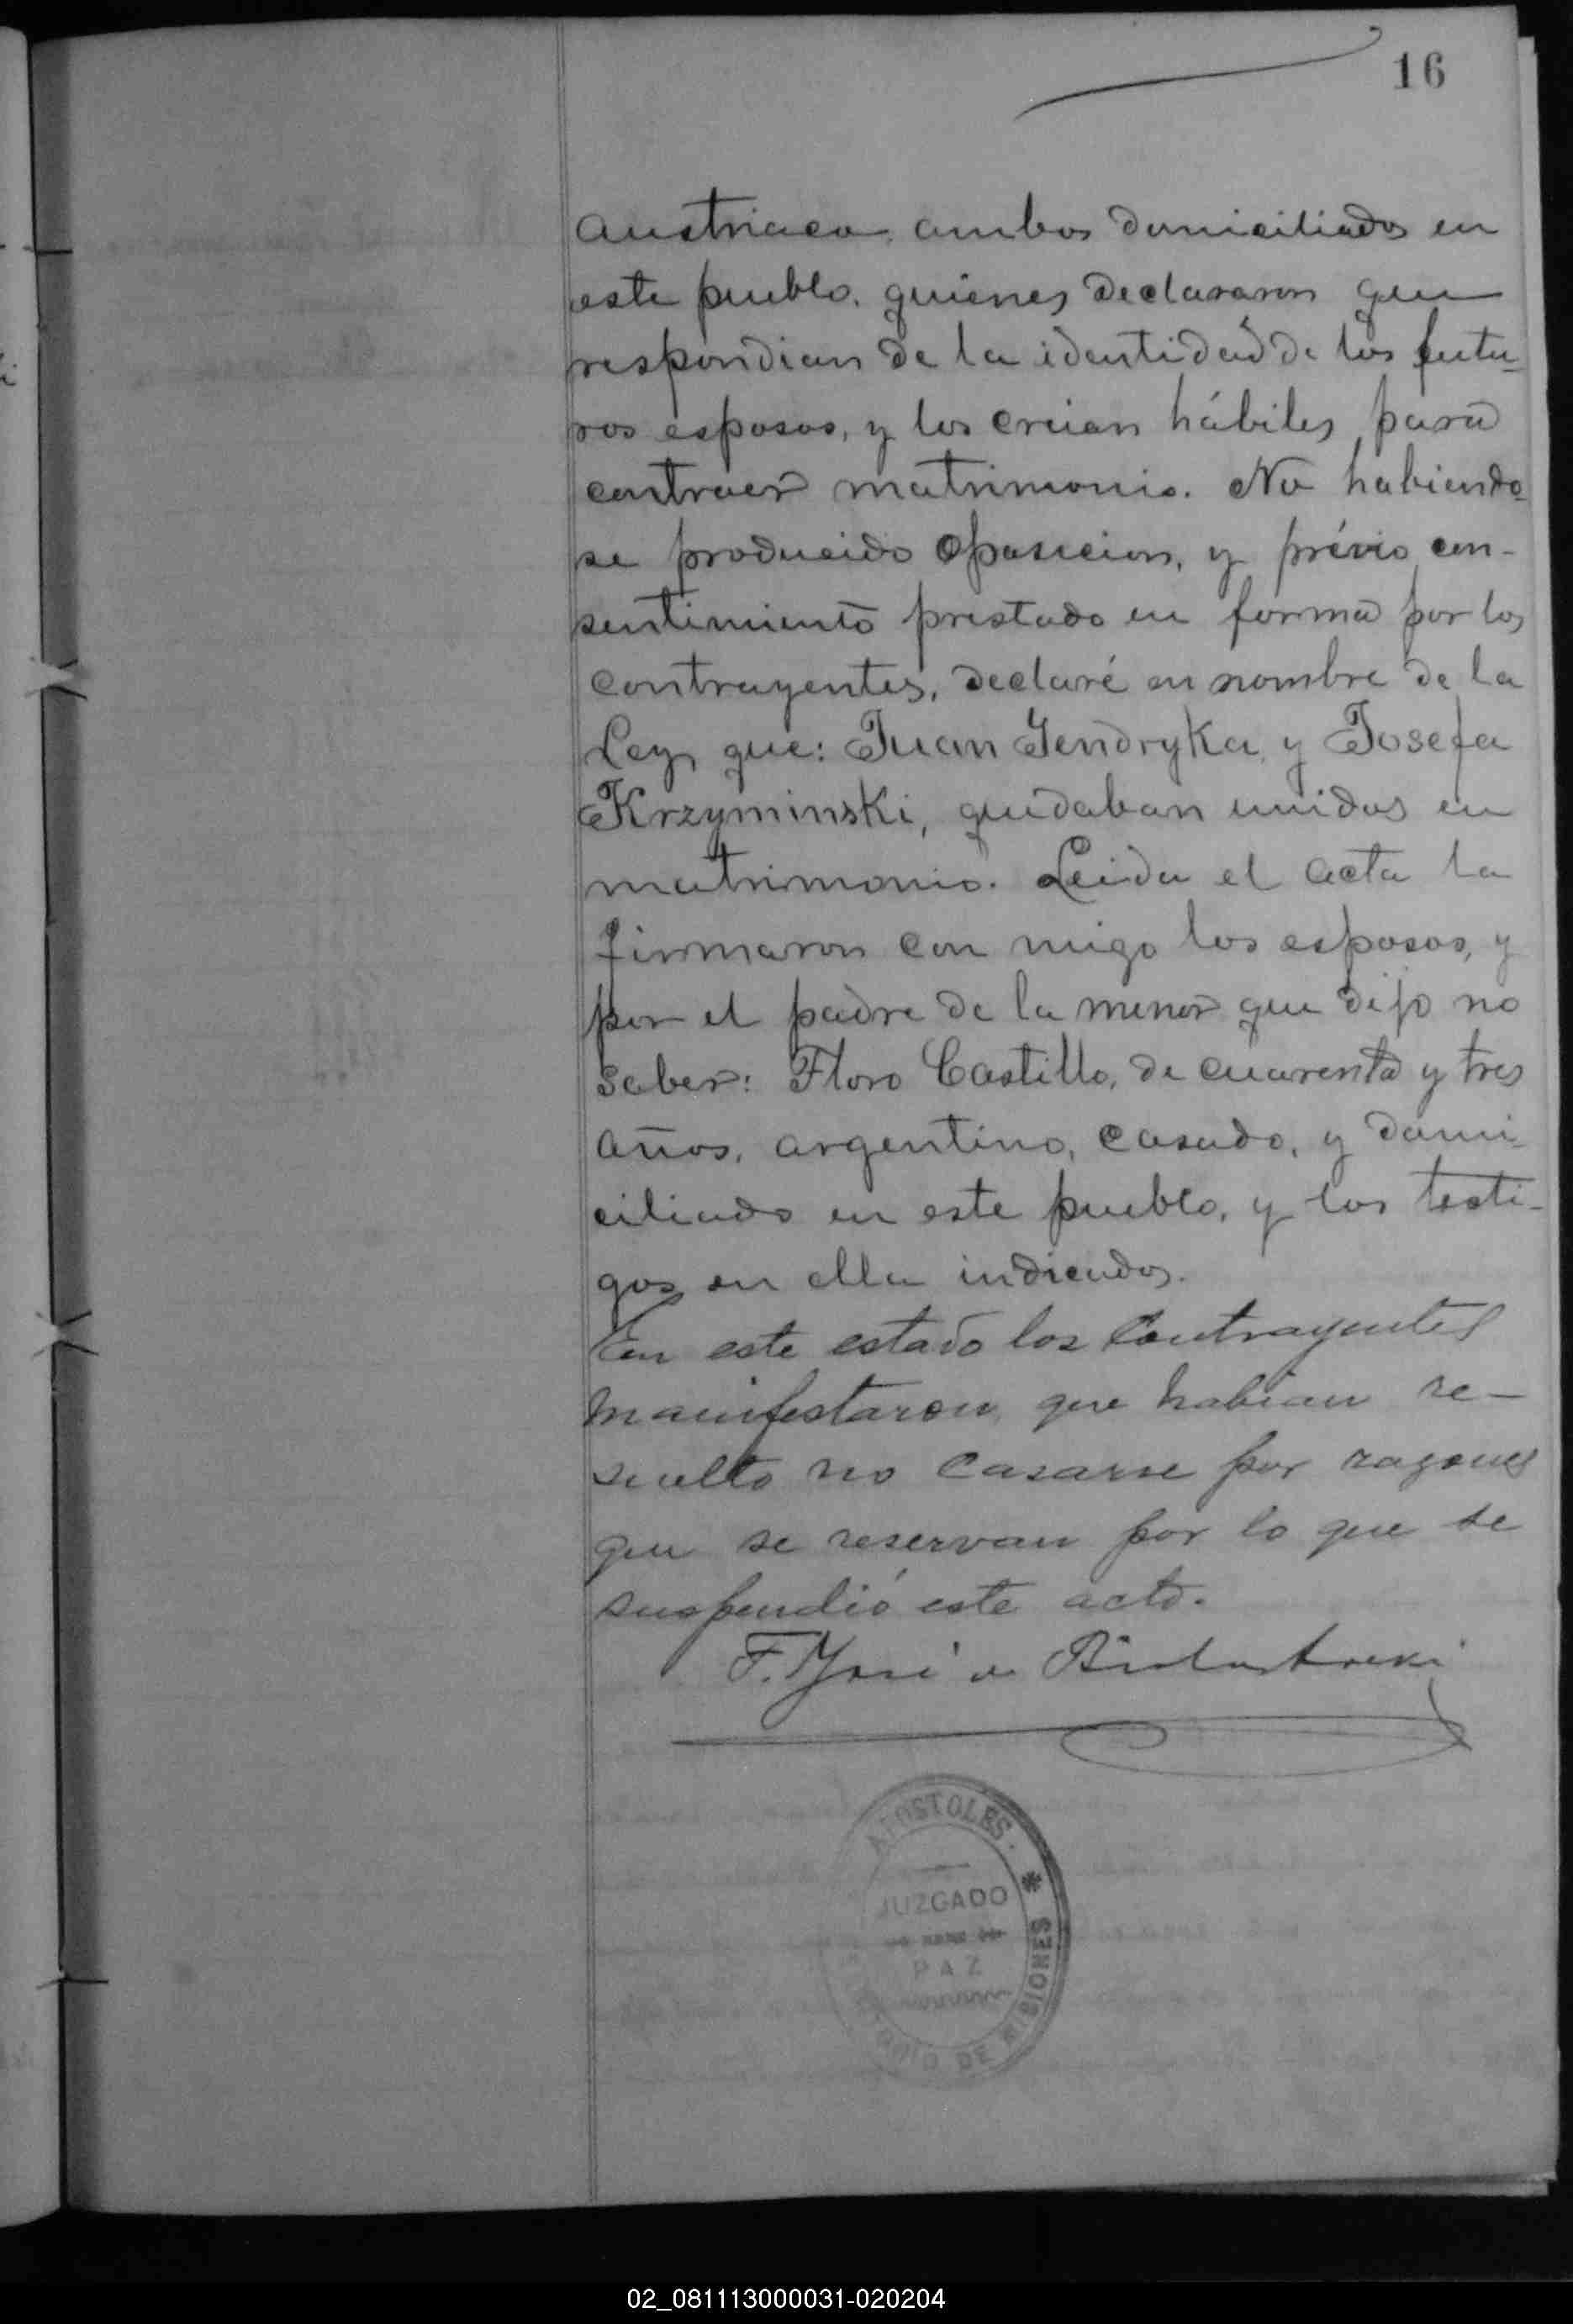 16
austriaco, ambos domiciliados en
este pueblo, quienes declararon que
respondian de la identidad de los futu-
ros esposos, y los creian hábiles para
contraer matrimonio. No habiendo-
se producido oposicion, y prévio con-
sentimiento prestado en forma por los
contrayentes, declaré en nombre de la
Ley, que: Juan Jendryka, y Josefa
Krzyminski, quedaban unidos en
matrimonio. Leida el acta la
firmaron con migo los esposos, y
por el padre de la menor que dijo no
saber: Floro Castillo, de cuarenta y tres
años, argentino, casado, y domi-
ciliado en este pueblo, y los testi-
gos en ella indicados.
En este estado los contrayentes
manifestaron que habian re-
suelto no casarse por razones
que se reservan por lo que se
suspendió este acto.
F. José
APOSTOLES.
JUZGADO
PAZ
DE MISIONES
02_081113000031-020204